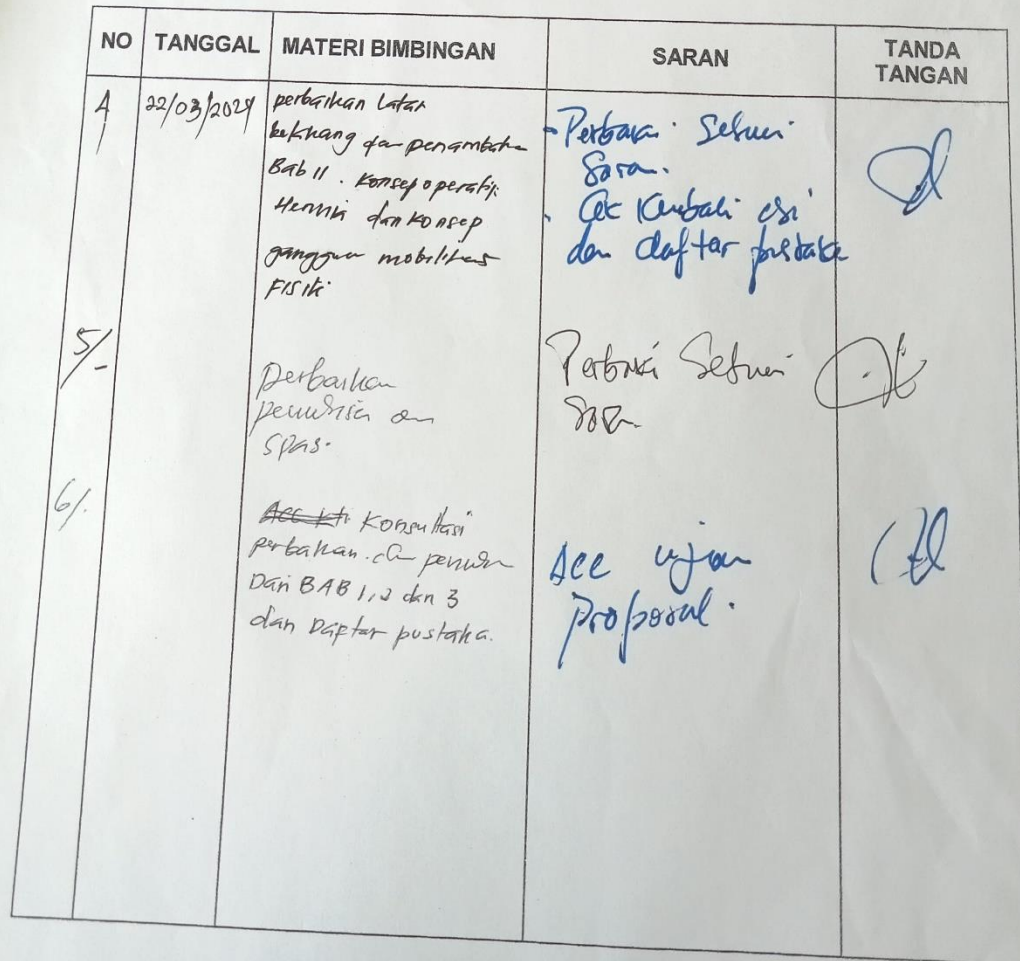 NO TANGGAL MATERI BIMBINGAN SARAN TANDA TANGAN
4 22/03/2024 perbaikan Latar
belakang dan penambahan
Bab II. Konsep operatif
Hernia dan konsep
gangguan mobilitas
Fisik
- Perbaiki Sesuai
Saran.
- Cek Kembali isi
dan daftar pustaka
5/-
perbaikan
penulisan dan
spasi.
Perbaiki Sesuai
Saran.
6/.
Acc kti Konsultasi
perbaikan penulisan
Dari BAB 1, 2 dan 3
dan Daftar pustaka.
Acc ujian
Proposal.